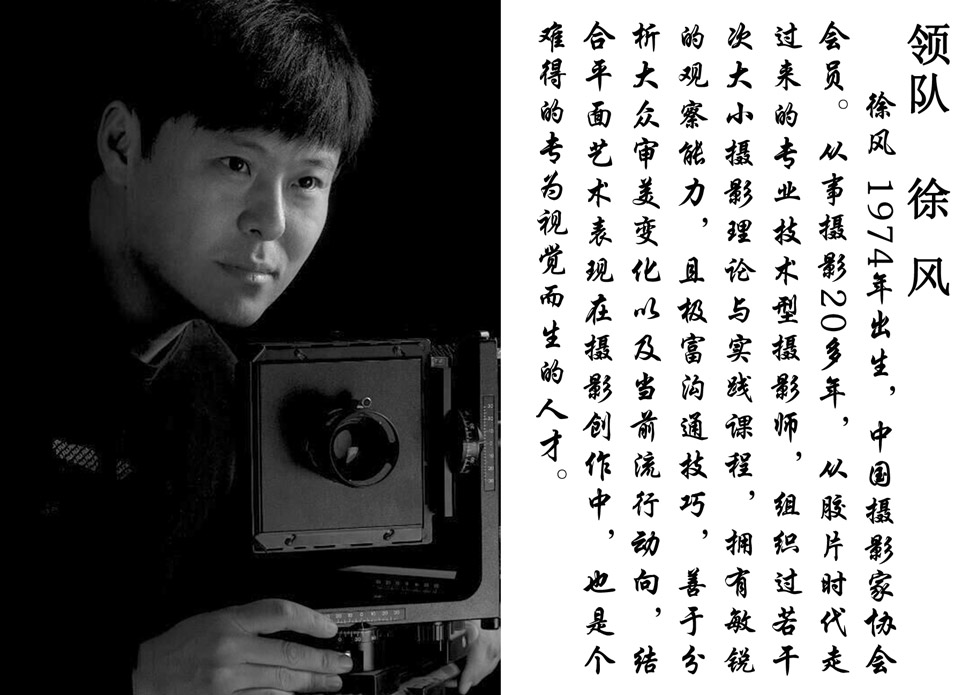 领队 徐风
徐风 1974年出生，中国摄影家协会
会员。从事摄影20多年，从胶片时代走
过来的专业技术型摄影师，组织过若干
次大小摄影理论与实践课程，拥有敏锐
的观察能力，且极富沟通技巧，善于分
析大众审美变化以及当前流行动向，结
合平面艺术表现在摄影创作中，也是个
难得的专为视觉而生的人才。